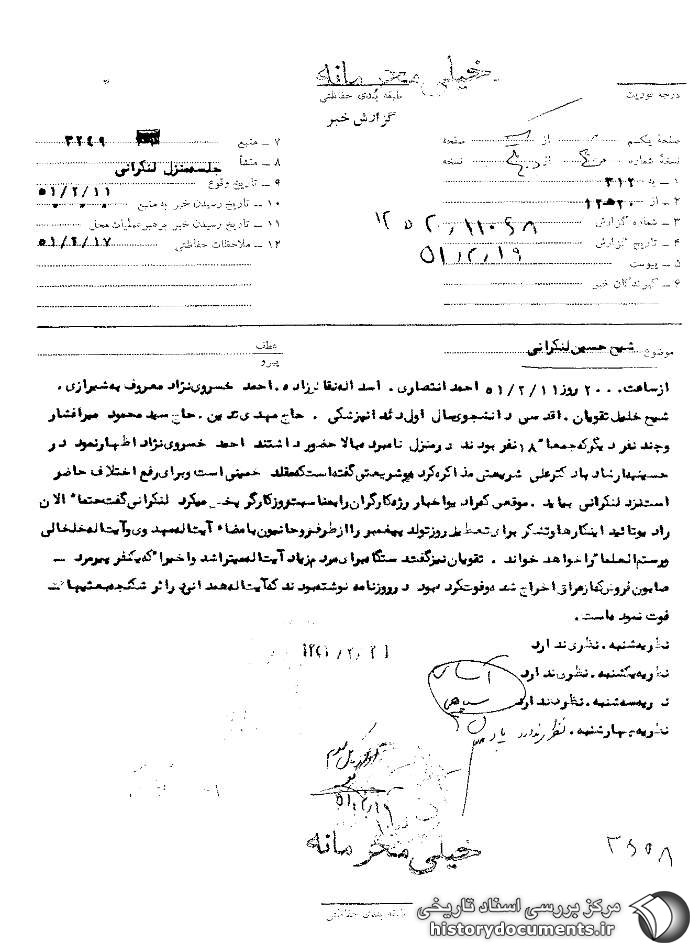 خیلی محرمانه
درجه فوریت
طبقه بندی حفاظتی
گزارش خبر
صفحه یکم از صفحه
نسخه شماره از نسخه
۱ - به ۳۱۲
۲ - از ۲۰ھ۱۲
۳ - شماره گزارش
۴ - تاریخ گزارش ۵۱/۲/۱۹
۵ - پیوست
۶ - گیرندگان خبر
۷ - منبع ۳۲۴۹
۸ - منشأ جلسه منزل لنکرانی
۹ - تاریخ وقوع ۵۱/۲/۱۱
۱۰ - تاریخ رسیدن خبر به منبع
۱۱ - تاریخ رسیدن خبر به رهبر عملیات محل
۱۲ - ملاحظات حفاظتی ۵۱/۲/۱۷
موضوع شیخ حسین لنکرانی
عطف
پیرو
از ساعت ۲۰۰۰ روز ۵۱/۲/۱۱ احمد انتصاری، اسداله نقارزاده، احمد خسروی نژاد معروف به شیرازی،
شیخ خلیل تقویان، اقدسی دانشجوی سال اول دندانپزشکی، حاج مهدی تدین، حاج سید محمود میرافشار
و چند نفر دیگر که جمعا" ۱۸ نفر بودند در منزل نامبرده بالا حضور داشتند احمد خسروی نژاد اظهار نمود در
حسینیه ارشاد با دکتر علی شریعتی مذاکره کرده و شریعتی گفته است که مقلد خمینی است و برای رفع اختلاف حاضر
است نزد لنکرانی بیاید. موقعی که رادیو اخبار رژه کارگران را بمناسبت روز کارگر پخش میکرد لنکرانی گفت حتما" الان
رادیو تائید اینکارها و تشکر برای تعطیل روز تولد پیغمبر را از طرف روحانیون بامضاء آیت اله مهدوی و آیت اله خلخالی
و رستم العلما" را خواهد خواند. تقویان نیز گفت دستگاه برای مردم زیاد آیت اله میتراشد و اخیرا" که یکنفر پیرمرد
صابون فروش که از عراق اخراج شده و فوت کرده بود در روزنامه نوشته بودند که آیت اله همدانی در اثر شکنجه بعثیها
فوت نموده است.
نظریه شنبه. نظری ندارد
نظریه یکشنبه. نظری ندارد
نظریه سه شنبه. نظری ندارد
نظریه چهارشنبه. نظری ندارد
۵۱/۲/۱۹
خیلی محرمانه
طبقه بندی حفاظتی
مرکز بررسی اسناد تاریخی
historydocuments.ir